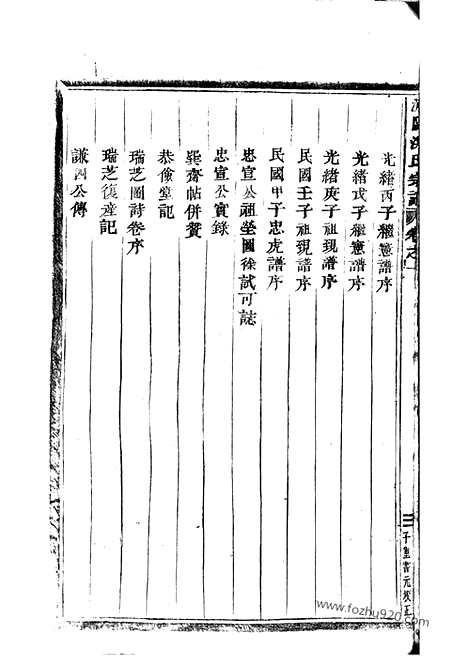 沈氏宗譜 卷之一
光緒丙子繼憲譜序
光緒戊子繼憲譜序
光緒庚子祖現譜序
民國壬子祖現譜序
民國甲子忠虎譜序
忠宣公祖塋圖徐試可誌
忠宣公實錄
巽齋帖併贊
恭儉堂記
瑞芝圖詩卷序
瑞芝復產記
謙四公傳
www.fozhu920.com